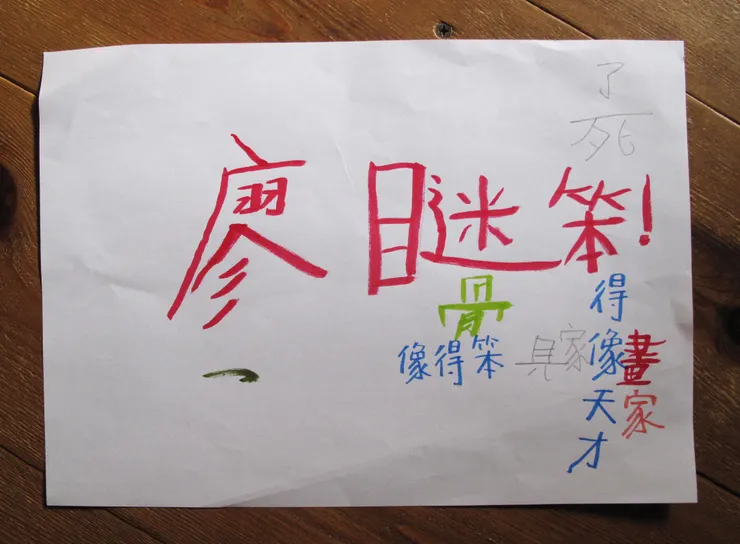 廖瞇笨!
了
死
骨
像得笨
具家
得像天才
畫家
一